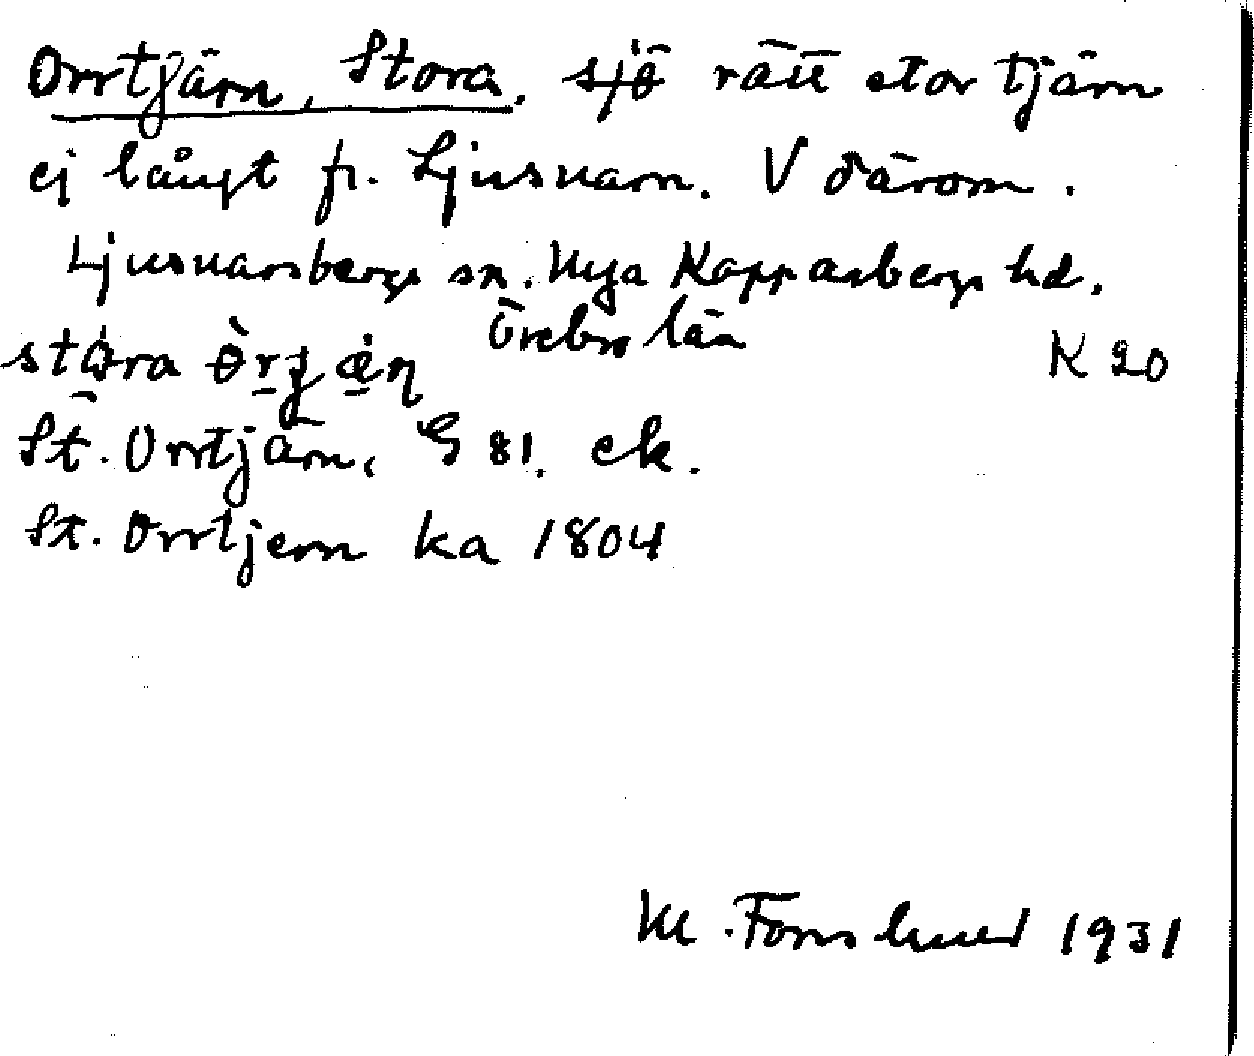 Orrtjärn, Stora. sjö rätt stor tjärn
ej långt fr. Ljusnarn. V därom.
Ljusnarsbergs sn. Nya Kopparbergs hd.
Örebro län
stora
K 20
St. Orrtjärn, G 81. ek.
St. Orrtjern ka 1804
M. Fornslund 1931